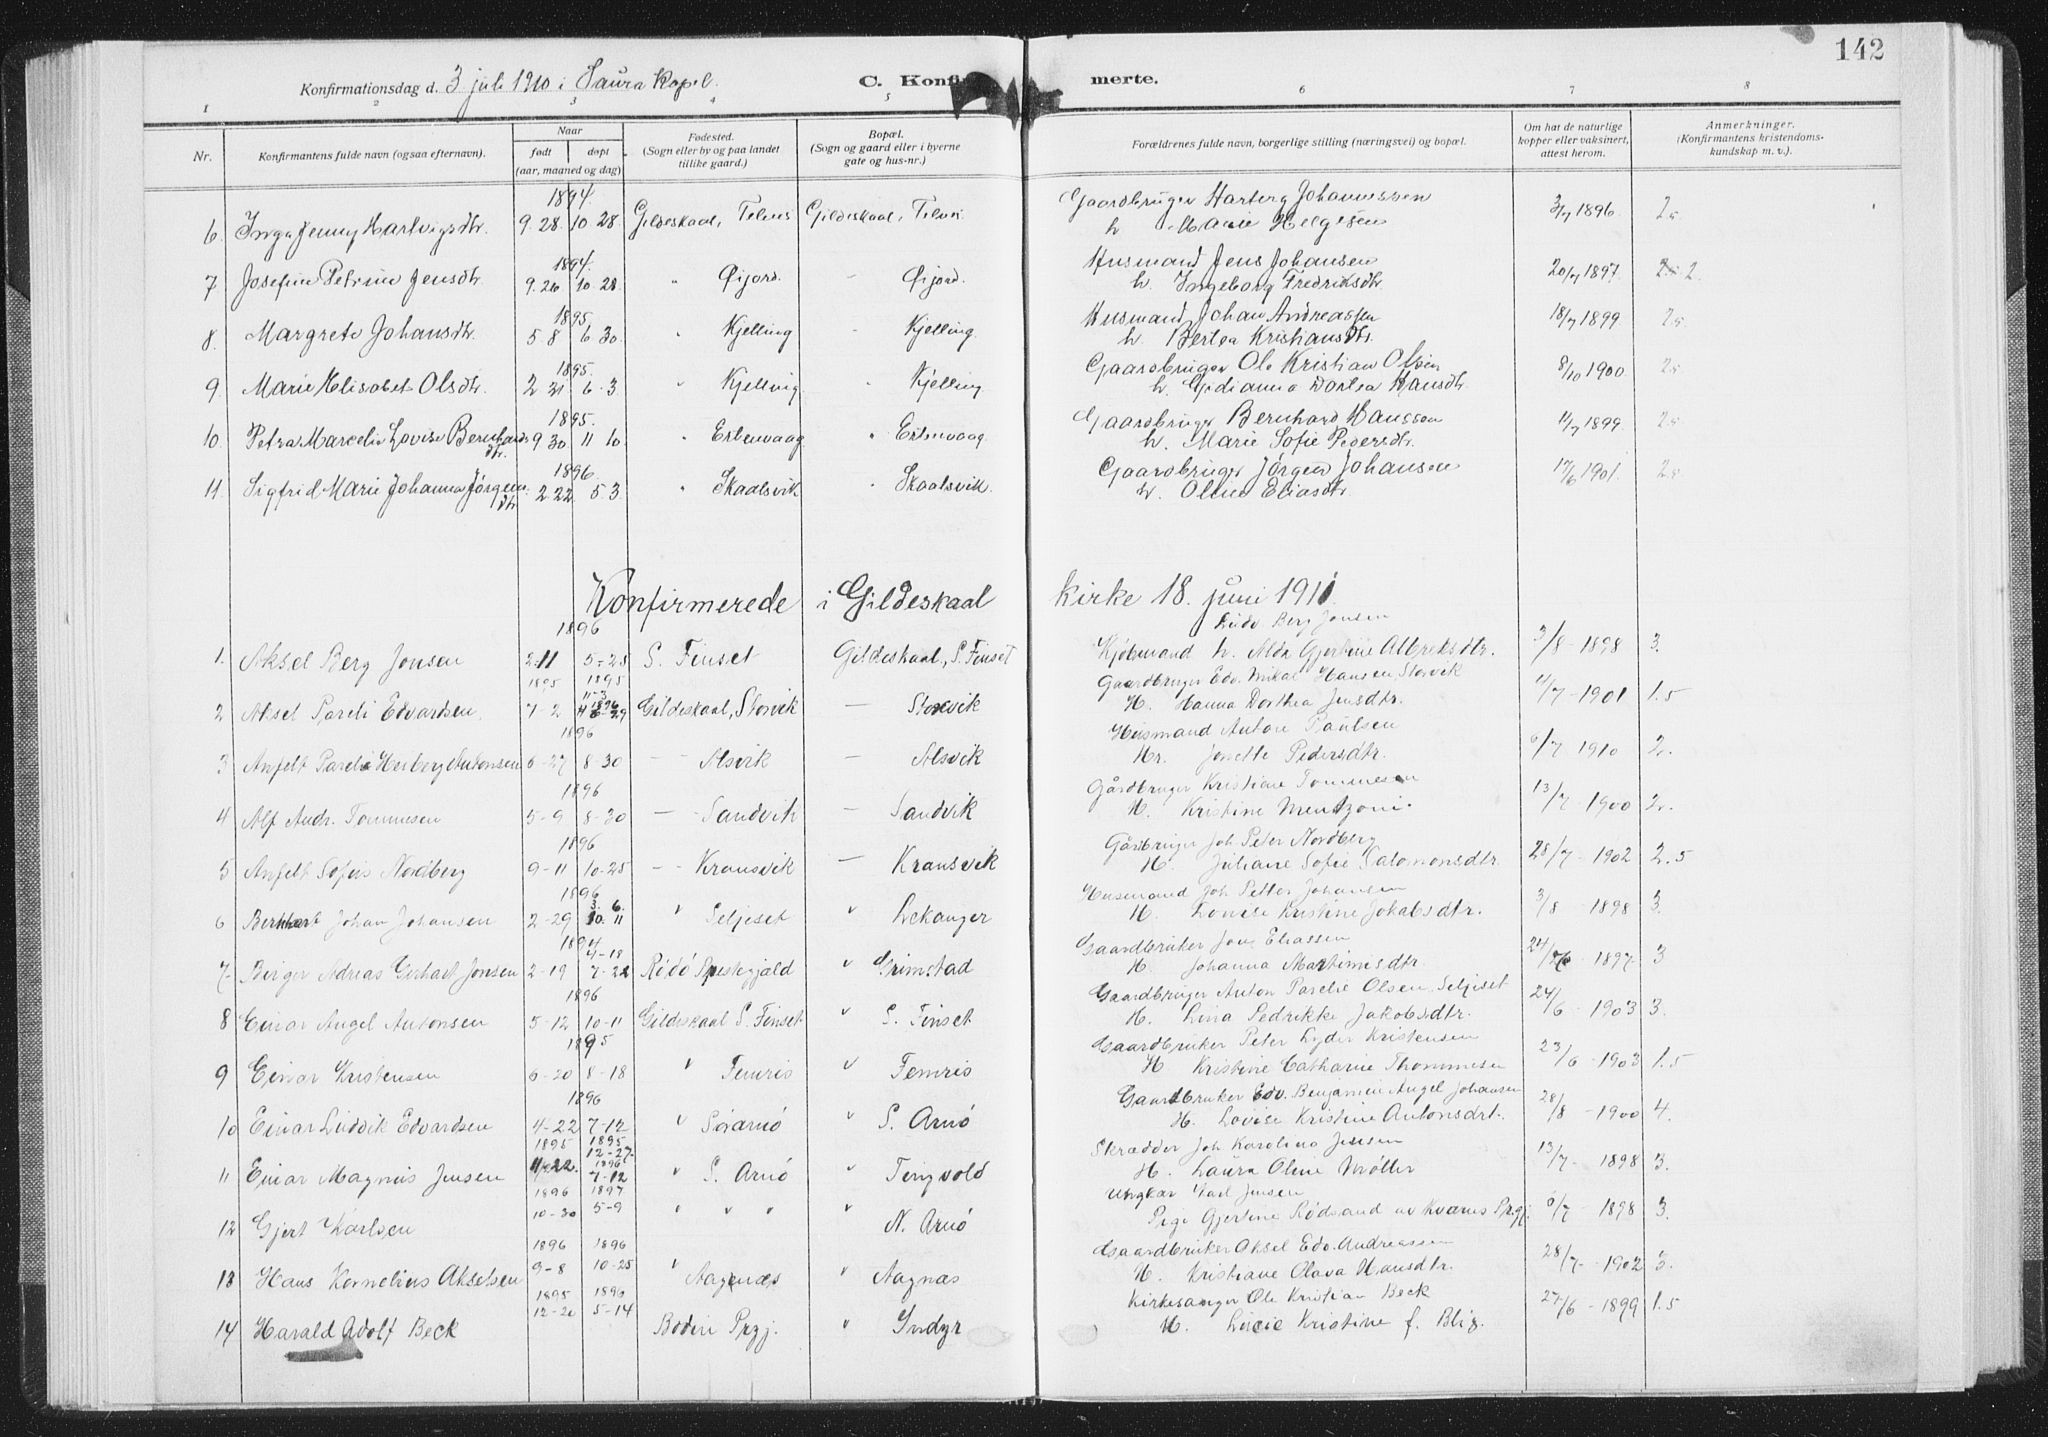 142
Konfirmationsdag d. 3 juli 1910 i Saura Kapel.
C. Konfir merte.
1 2 3 4 5 6 7 8
Nr. Konfirmantens fulde navn (ogsaa efternavn). Naar født døpt (aar, maaned og dag) Fødested. (Sogn eller by og paa landet tillike gaard.) Bopæl. (Sogn og gaard eller i byerne gate og hus-nr.) Forældrenes fulde navn, borgerlige stilling (næringsvei) og bopæl. Om hat de naturlige kopper eller vaksinert, attest herom. Anmerkninger. (Konfirmantens kristendoms-kundskap m. v.).
1894. Gaardbruger Hartvig Johannessen
6. Inga Jenny Hartvigsdtr. 9. 28. 10. 28. Gildeskaal, Telnes Gildeskaal, Telnes h Marie Helgesen 3/7 1896. 2.5
1894. Husmand Jens Johansen
7. Josefine Petrine Jensdtr 9. 26 10. 28. " Øijord. - Øijord. h. Ingeborg Fredriksdtr. 20/7 1897. 2.
1895 Husmand Johan Andreassen
8. Margrete Johansdtr. 5 8 6 30. " Kjelling - Kjelling. h Berlea Kristiansdtr. 18/7 1899 2.5
1895. Gaardbruger Ole Kristian Olsen
9. Marie Elisabet Olsdtr. 2 21 6. 3. " Kjelling " Kjelling h. Gidianna Dortea Hansdtr. 8/10 1900. 2.5
1895. Gaardbruger Bernhard Hanssen
10. Petra Marcelie Lovise Bernhards dtr. 9 30 11 10. " Ertenvaag " Ertenvaag h. Marie Sofie Pedersdtr. 11/7 1899. 2.5
1896. Gaardbruger Jørgen Johansen
11. Sigfrid Marie Johanna Jørgens dtr 2. 22. 5. 3 " Skaalsvik " Skaalsvik. h. Oline Eliasdtr. 17/6 1901. 2.5
Konfirmerede i Gildeskaal kirke 18. juni 1911.
1896 Ludv Berg Jonsen
1. Aksel Berg Jonsen 2-11 5-25 S. Finset Gildeskaal, S. Finset Kjøbmand h. Alda Gjertine Albreksdtr. 3/8 - 1898 3.
1895 1895 11-3 Gaardbruger Edv. Mikal Hansen Storvik
2 Aksel Pareli Edvardsen 7-2 1896 6-29 Gildeskaal, Storvik — Storvik H. Hanna Dorthea Jensdtr. 11/7 - 1901 1.5
1896 Husmand Anton Paulsen
3 Anfelt Pareli Heiberg Antonsen 6-27 8-30 - - Alsvik — Alsvik Hr. Jonette Pedersdtr. 6/7 1910 2.
1896 Gårdbruger Kristiane Tommesen
4 Alf Andr. Tommesen 5-9 8-30 — Sandvik — Sandvik H. Kristine Mentzoni. 13/7 - 1900 2.
1896 Gårdbruger Joh. Peter Nordberg
5 Anfelt Sofus Nordberg 9-11 10-25 - - Kransvik — Kransvik H. Juliane Sofie Salomonsdtr. 28/7 - 1902 2.5
1896 3. 6. Husmand Joh Petter Johansen
6 Bernhart Johan Johansen 2-29 10. 11 " Seljeset " Lekanger H. Lovise Kristine Jakobsdtr. 3/8 - 1898 3.
1894 4-18 Gaardbruker Jons Eliassen
7. Birger Adrias Gerhart Jonsen 2-19 7-22 Rødø Prestegjæld " Grimstad H. Johanna Martinusdtr. 24/6 - 1897. 3
1896 Gaardbruger Anton Parelie Olsen Seljeset
8 Einar Angel Antonsen 5-12 10-11 Gildeskaal S. Finset " S. Finset H. Lina Pedrikke Jakobsdtr. 24/6 - 1903 3.
1895 Gaardbruker Peter Lyder Kristensen
9 Einar Kristensen 6-20 8-18 " Femris " Femris H Kristine Catharine Thommesen 23/6 - 1903 1.5
1896 Gaardbruker Edv. Benjamin Angel Johansen
10 Einar Ludvik Edvardsen 4-22 7-12 " Sørarnø " S. Arnø H. Lovise Kristine Antonsdrt. 28/8 - 1900 4.
1895 1895 12-27. Skrædder Joh Karolius Jensen
11 Einar Magnus Jensen 4-22. 1896 7-12 " S. Arnø " Tengvold H. Laura Oline Møller 13/7 - 1898 3.
1896 1897 Ungkar Karl Jensen
12 Gjert Karlsen 10-30 5-9 " " " N. Arnø Pige Gjertine Rødsand av Kvæns Prgj. 6/7 - 1898 3.
1896 1896 Gaardbruker Aksel Edv. Andreassen
13 Hans Kornelius Akselsen 9-8 10-25 " Aagenæs " Aagnæs H. Kristiane Olava Hansdtr. 28/7 - 1902 3.
1895 1896 Kirkesanger Ole Kristian Beck
14 Harald Adolf Beck 12-20 5-14 Bodin Prgj. " Indyr H. Lucie Kristine f. Blix. 27/6 - 1899 1.5